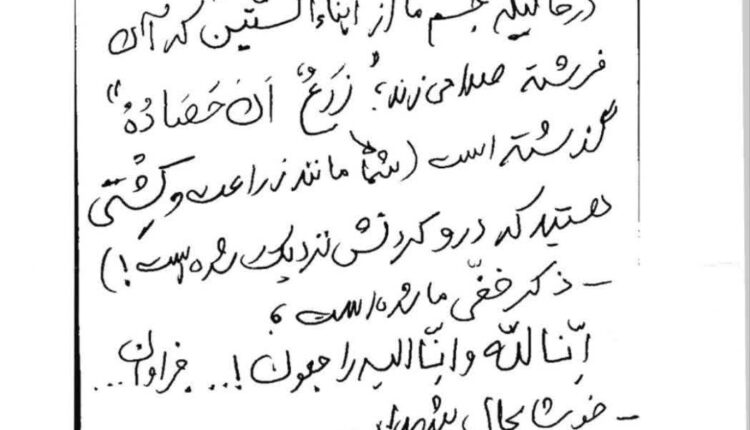 درحالیکه جسم ما از ابناء الستین که آن
فرشته صلا می‌زند؛ "زَرْعٌ اَنَ حَصَادُهُ"
گذشته است (شما مانند زراعت و کِشتی
هستید که درو کردنش نزدیک شده است!)
– ذکر خفیّ ما شده است؛
اِنّا لله و انّا الیه راجعون!... فراوان...
– خوشا بحال شهدا